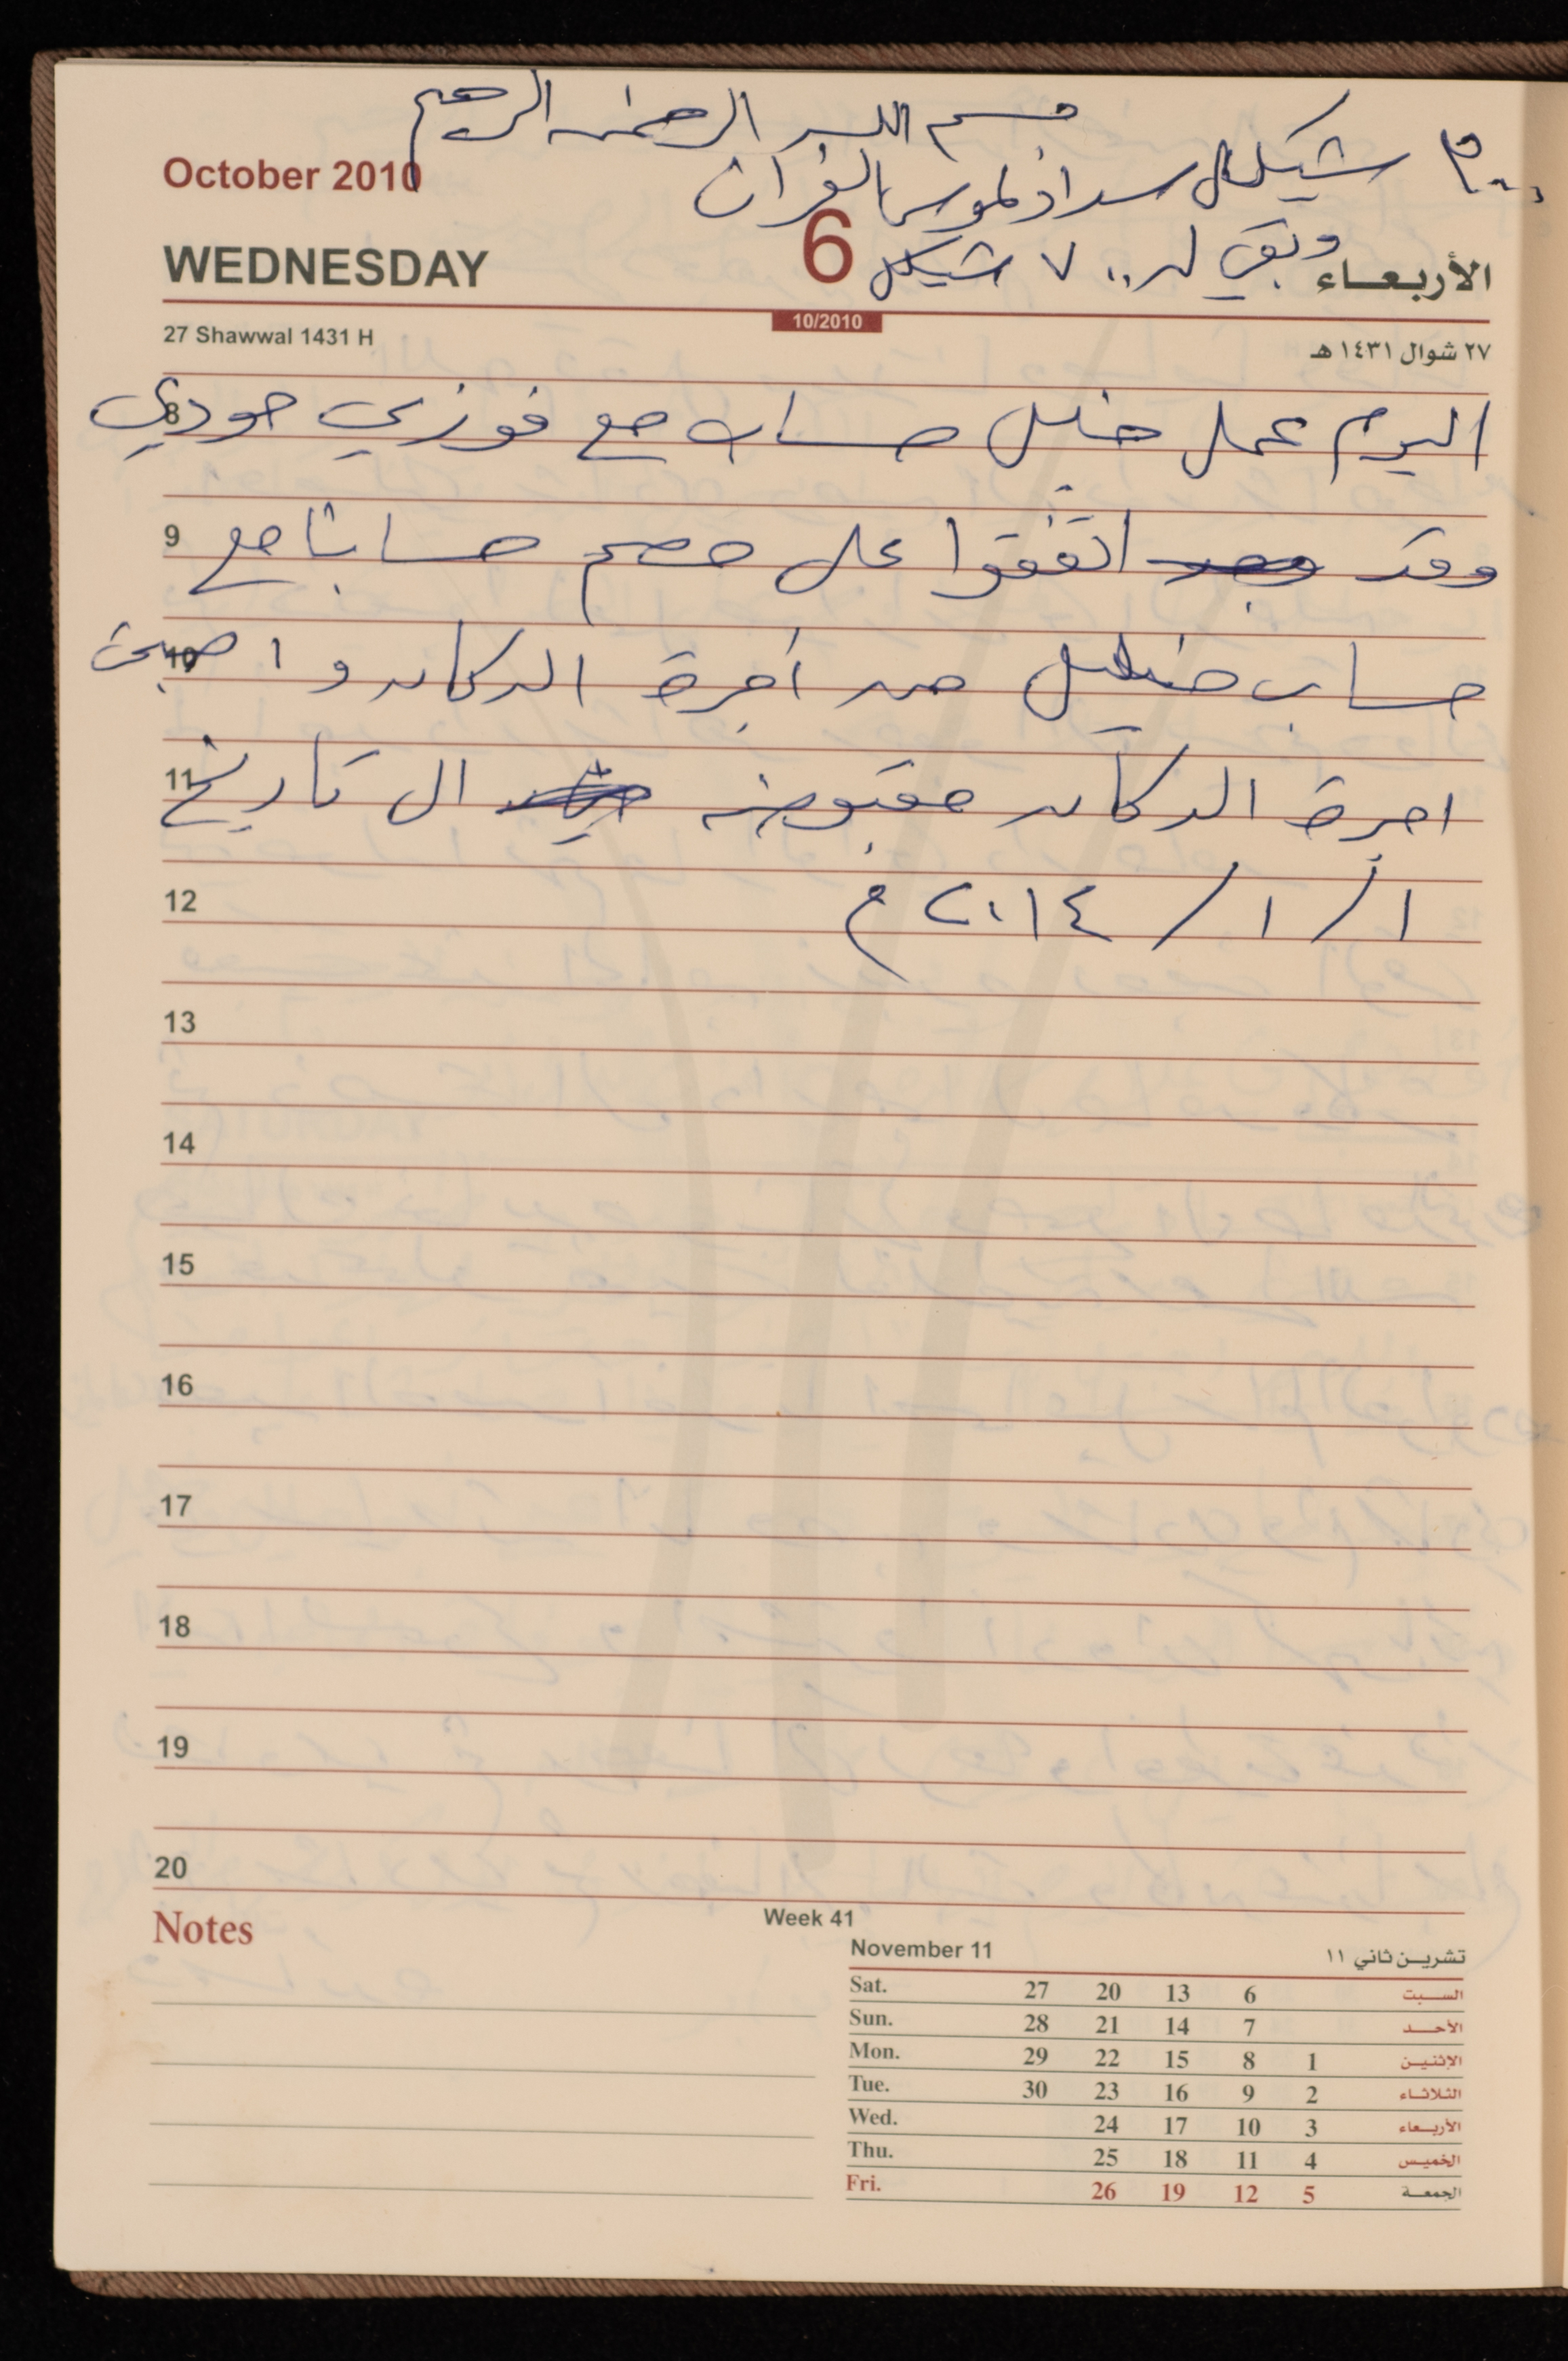 بسم الله الرحمن الرحيم
٣٠٠٠ شيكل سداد لموسى القزان
October 2010
وبقي له ٧٠٠ شيكل
WEDNESDAY 6 الأربعاء
10/2010
27 Shawwal 1431 H ٢٧ شوال ١٤٣١ هـ
8 اليوم عمل خليل حساب مع فوزي جودي
9 وقد اتفقوا على خصم حسابنا مع
10 حساب خليل من أجرة الدكان واصبحت
11 اجرة الدكان مقبوضه الى تاريخ
12 ١ / ١ / ٢٠١٤ م
13
14
15
16
17
18
19
20
Notes
Week 41
November 11 تشرين ثاني ١١
Sat. 27 20 13 6 السبت
Sun. 28 21 14 7 الأحد
Mon. 29 22 15 8 1 الإثنين
Tue. 30 23 16 9 2 الثلاثاء
Wed. 24 17 10 3 الأربعاء
Thu. 25 18 11 4 الخميس
Fri. 26 19 12 5 الجمعة